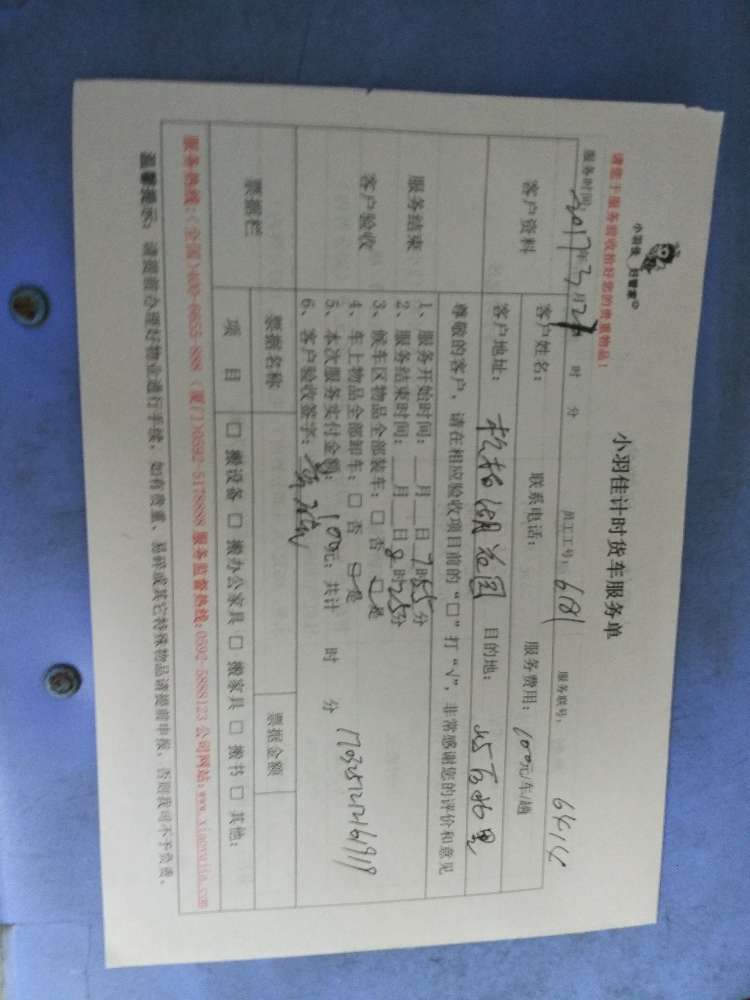 小羽佳 好管家
小羽佳计时货车服务单
请您于服务前收拾好您的贵重物品！
服务时间：2017年3月2日 时 分 员工工号：6181 服务联号：
客户资料 客户姓名： 联系电话： 服务费用：100元/车/趟
客户地址： 松柏湖花园 目的地：
尊敬的客户，请在相应验收项目前的“□”打“√”，非常感谢您的评价和意见
服务结束
客户验收
1、服务开始时间：__月__日7时55分
2、服务结束时间：__月__日8时25分
3、候车区物品全部装车：□ 否 □ 是
4、车上物品全部卸车：□ 否 □ 是
5、本次服务实付金额：100元；共计 时 分
6、客户验收签字：
票据栏 票据名称 票据金额
项 目 □ 搬设备 □ 搬办公家具 □ 搬家具 □ 搬书 □ 其他：
服务热线：（全国）400-6655-888 （厦门）0592-5178888 服务监督热线：0592-5888123 公司网站：www.xiaoyujia.com
温馨提示：请提前办理好物业进行手续，如有贵重、易碎或其它特殊物品请提前申报，否则我司不予负责。